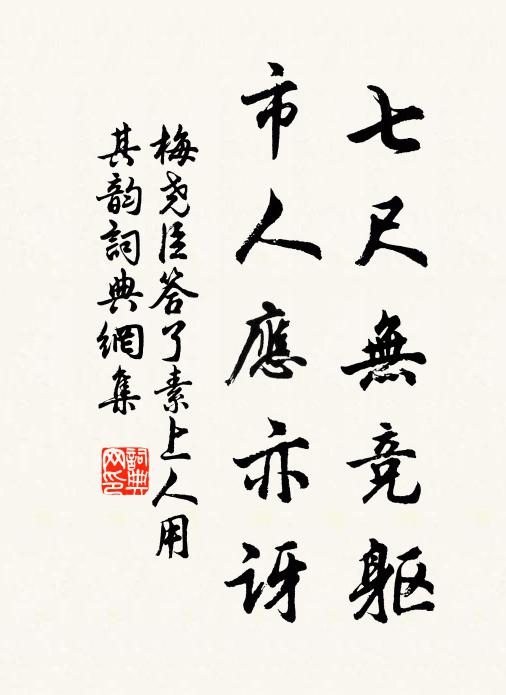 七尺無竞躯
市人應亦讶
梅尧臣答了素上人用
其韵詞典網集
詞典網印